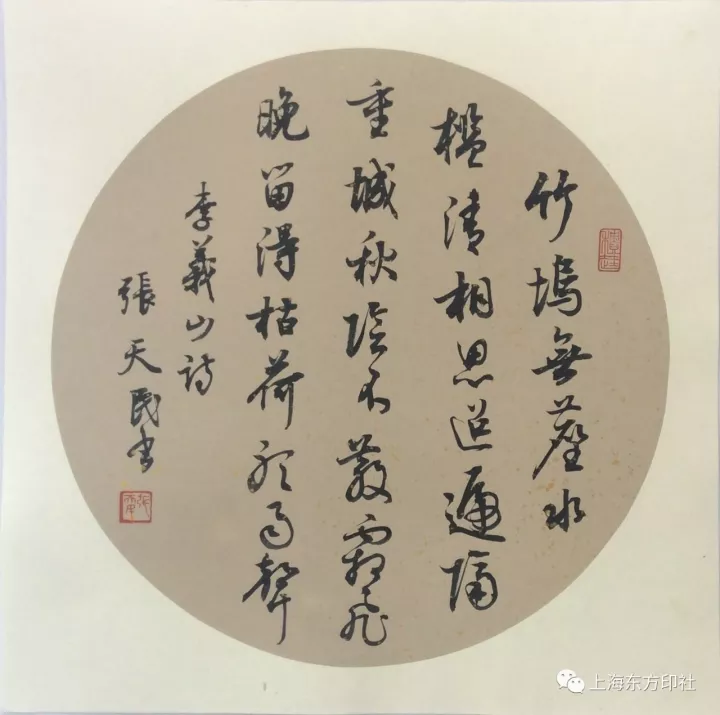 竹塢無塵水
檻清相思迢遞隔
重城秋陰不散霜飛
晚留得枯荷聽雨聲
李義山詩
張天民書
上海东方印社